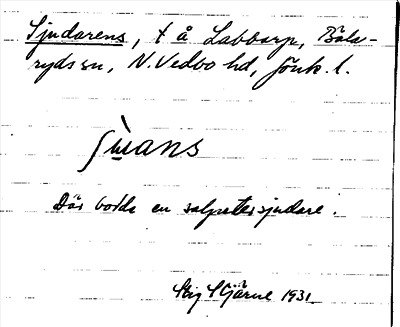 Sjudarens, t å Labbarp, Bäla-
ryds sn, N. Vedbo hd, Jönk. l.
ʃùans
Där bodde en salpetersjudare.
Stig Stjärne 1931